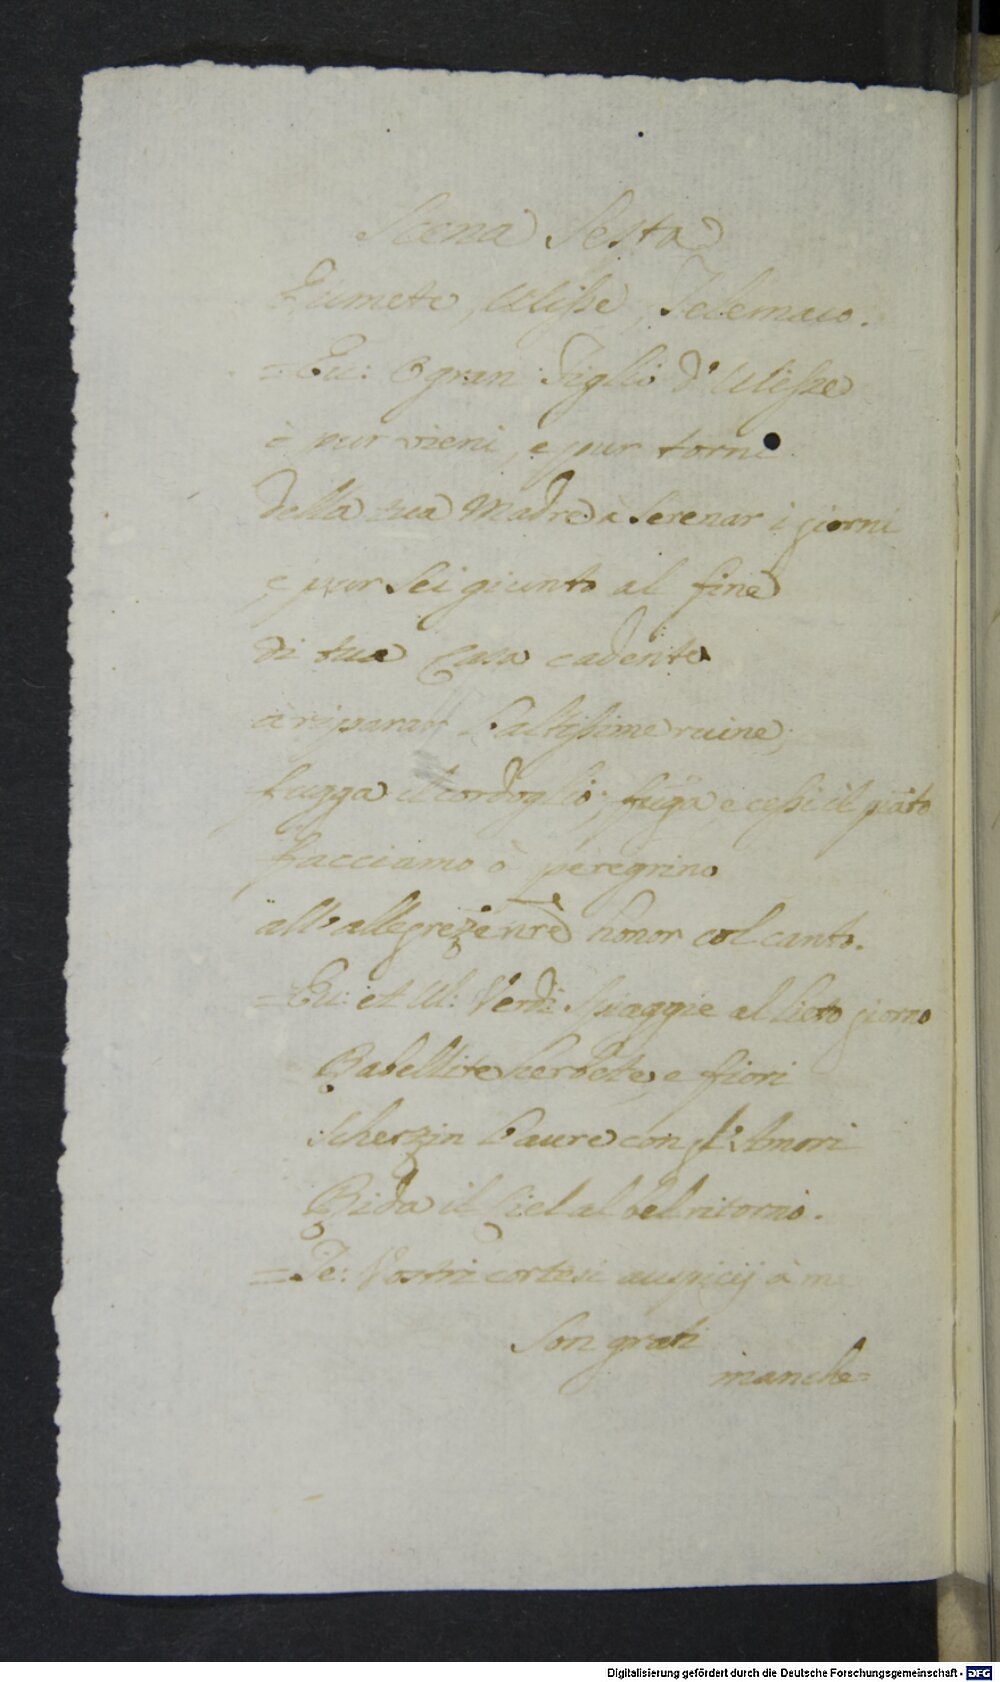 Scena Sesta
Eumete, Ulisse, Telemaco.
=Eu: O gran Figlio d'Ulisse
è pur vieni, e pur torni
della tua Madre à serenar i giorni
e pur sei giunto al fine
di tua Casa cadente
à riparar l'altissime ruine,
fugga il cordoglio, fuga e cessi il piāto
facciamo ò peregrino
all'allegreze nrē honor col canto.
=Eu: et Ul: Verdi spiaggie al lieto giorno
Rabellite herbete, e fiori
scherzin l'aure con gl'Amori
Rida il Ciel al bel ritorno.
=Te: Vostri cortesi auspicij à me
son grati
manche=
Digitalisierung gefördert durch die Deutsche Forschungsgemeinschaft - DFG